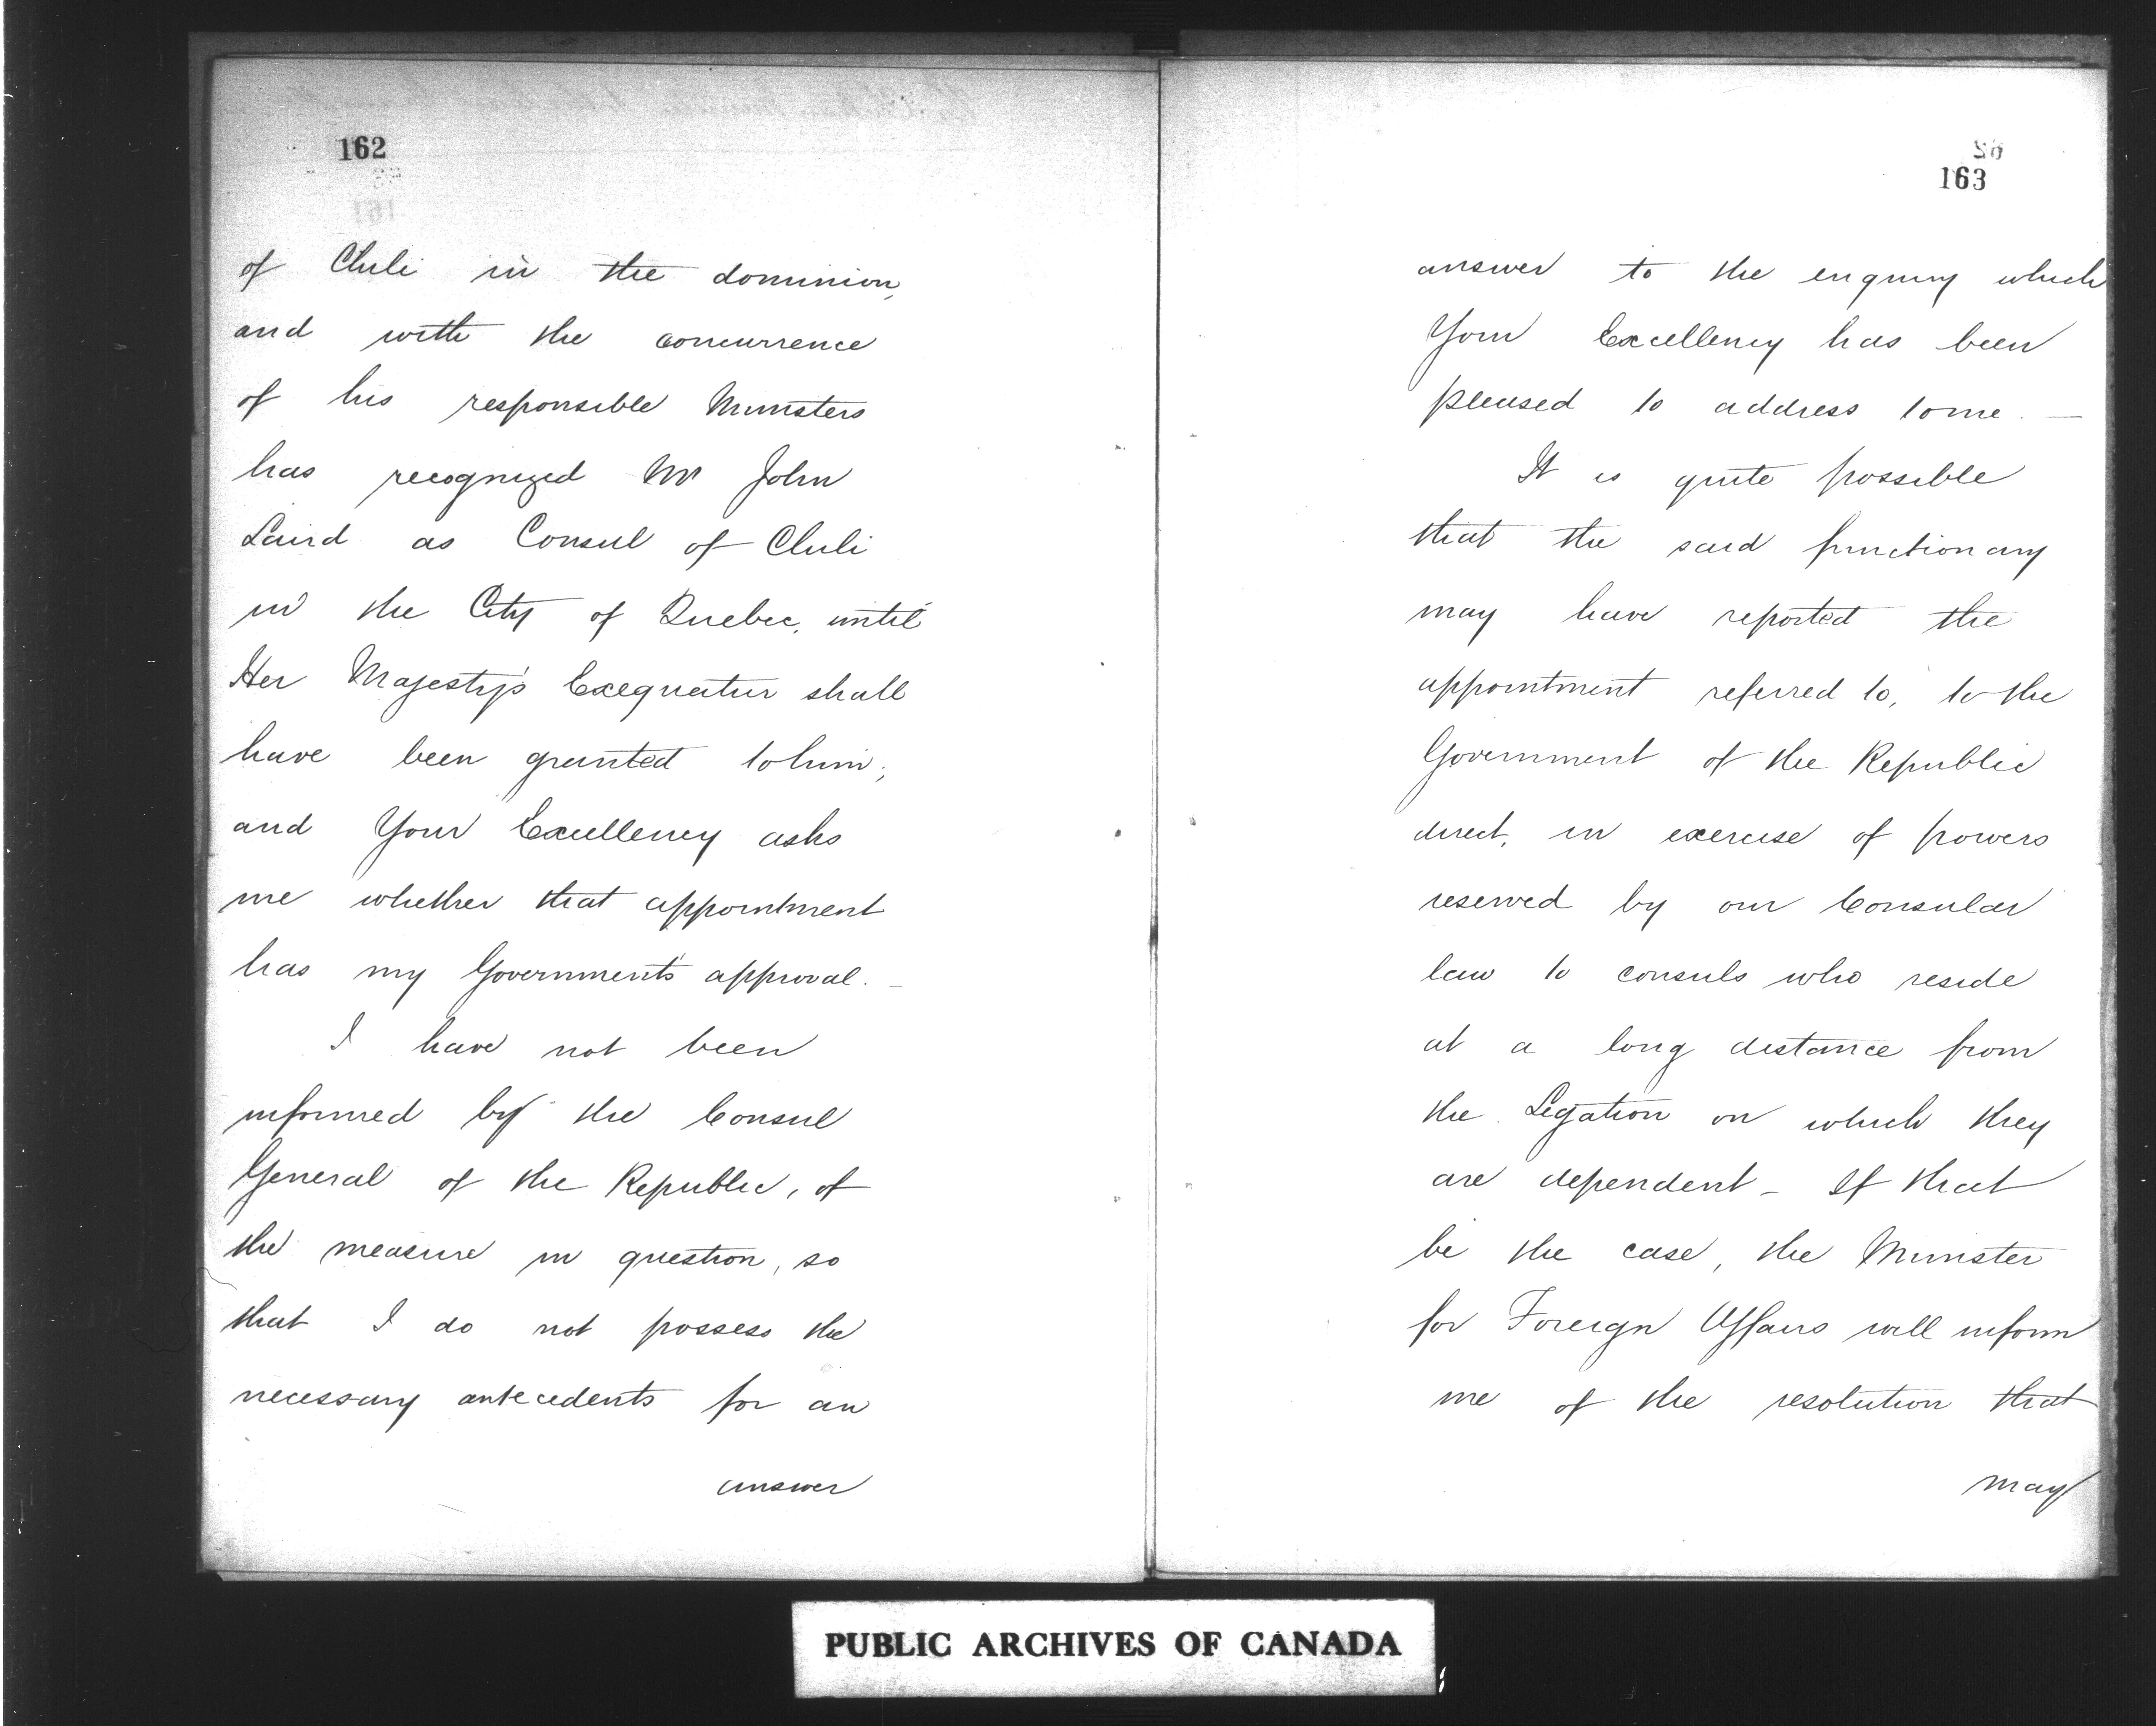 162
of Chili in the dominion,
and with the concurrence
of his responsible Ministers
has recognized Mr John
Laird as Consul of Chili
in the City of Quebec, until
Her Majesty's Exequatur shall
have been granted to him;
and Your Excellency asks
me whether that appointment
has my Government's approval. –
I have not been
informed by the Consul
General of the Republic, of
the measure in question, so
that I do not possess the
necessary antecedents for an
answer
163
answer to the enquiry which
Your Excellency has been
pleased to address to me. —
It is quite possible
that the said functionary
may have reported the
appointment referred to, to the
Government of the Republic
direct, in exercise of powers
reserved by our Consular
law to consuls who reside
at a long distance from
the Legation on which they
are dependent – If that
be the case, the Minister
for Foreign Affairs will inform
me of the resolution that
may
PUBLIC ARCHIVES OF CANADA